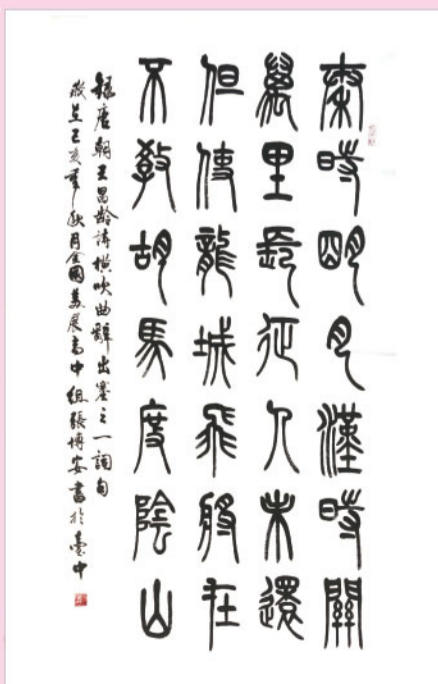 秦時明月漢時關
萬里長征人未還
但使龍城飛將在
不教胡馬度陰山
錄唐朝王昌齡詩橫吹曲辭出塞之一詞句
歲並己亥年秋月全國美展高中組張博安書於臺中